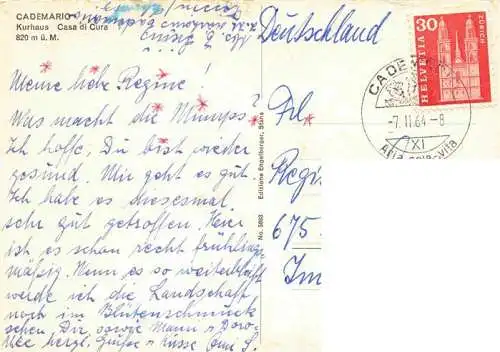 CADEMARIO
Kurhaus Casa di Cura
820 m ü. M.
Meine liebe Regine!
Was macht die Mumps?
Ich hoffe, Du bist wieder
gesund. Mir geht es gut.
Ich habe es diesesmal
sehr gut getroffen. Hier
ist es schon recht frühlings-
mäßig. Wenn es so weiterbleibt
werde ich die Landschaft
noch im Blütenschmuck
sehen. Dir, sowie Mann u. Doro-
thee herzl. Grüße u. Küsse Omi S.
No. 5693 Editions Engelberger, Stans
Deutschland
Frl.
Regi
675
Im
HELVETIA 30
CADEM
-7. II. 64 - 8
XI